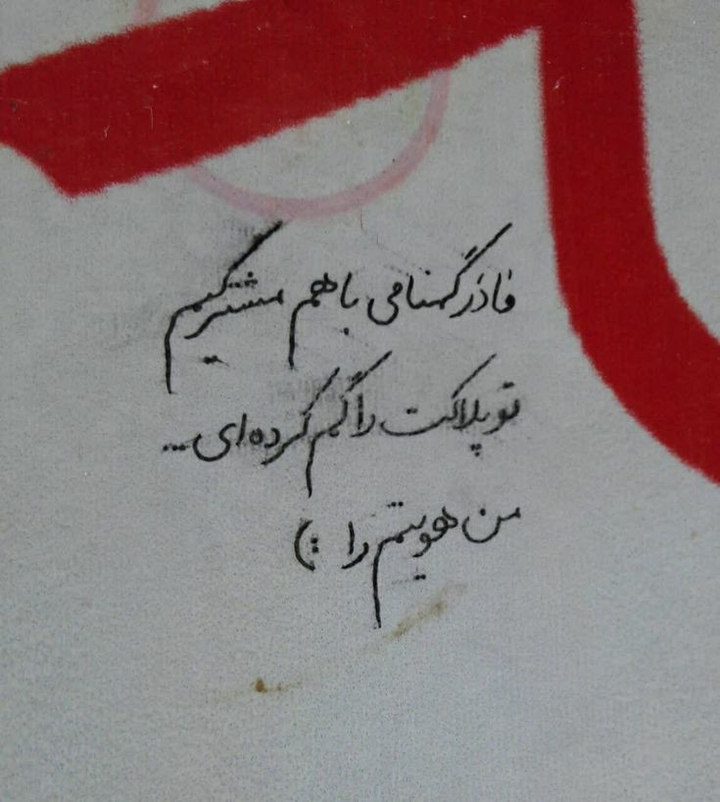 فاذر گمنامی با هم مشترکیم
تو پلاکت را گم کرده ای...
من هویتم را :)